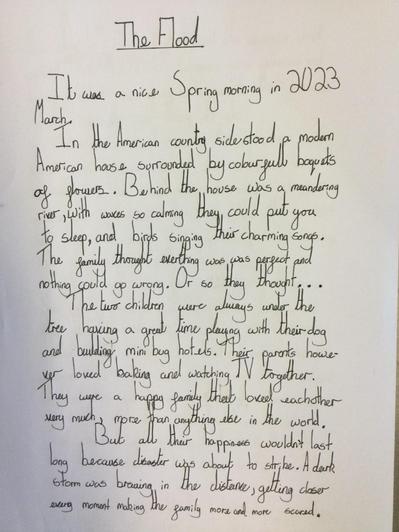 The Flood
It was a nice Spring morning in 2023
March.
In the American country side stood a modern
American house surrounded by colourfull boquets
of flowers. Behind the house was a meandering
river, with waves so calming they could put you
to sleep, and birds singing their charming songs.
The family thought everthing was was perfect and
nothing could go wrong. Or so they thought...
The two children were always under the
tree having a great time playing with their dog
and building mini bug hotels. Their parents howe-
ver loved baking and watching TV together.
They were a happy family that loved eachother
very much, more than anything else in the world.
But all their happiness wouldn't last
long because disaster was about to strike. A dark
storm was brewing in the distance, getting closer
every moment making the family more and more scared.